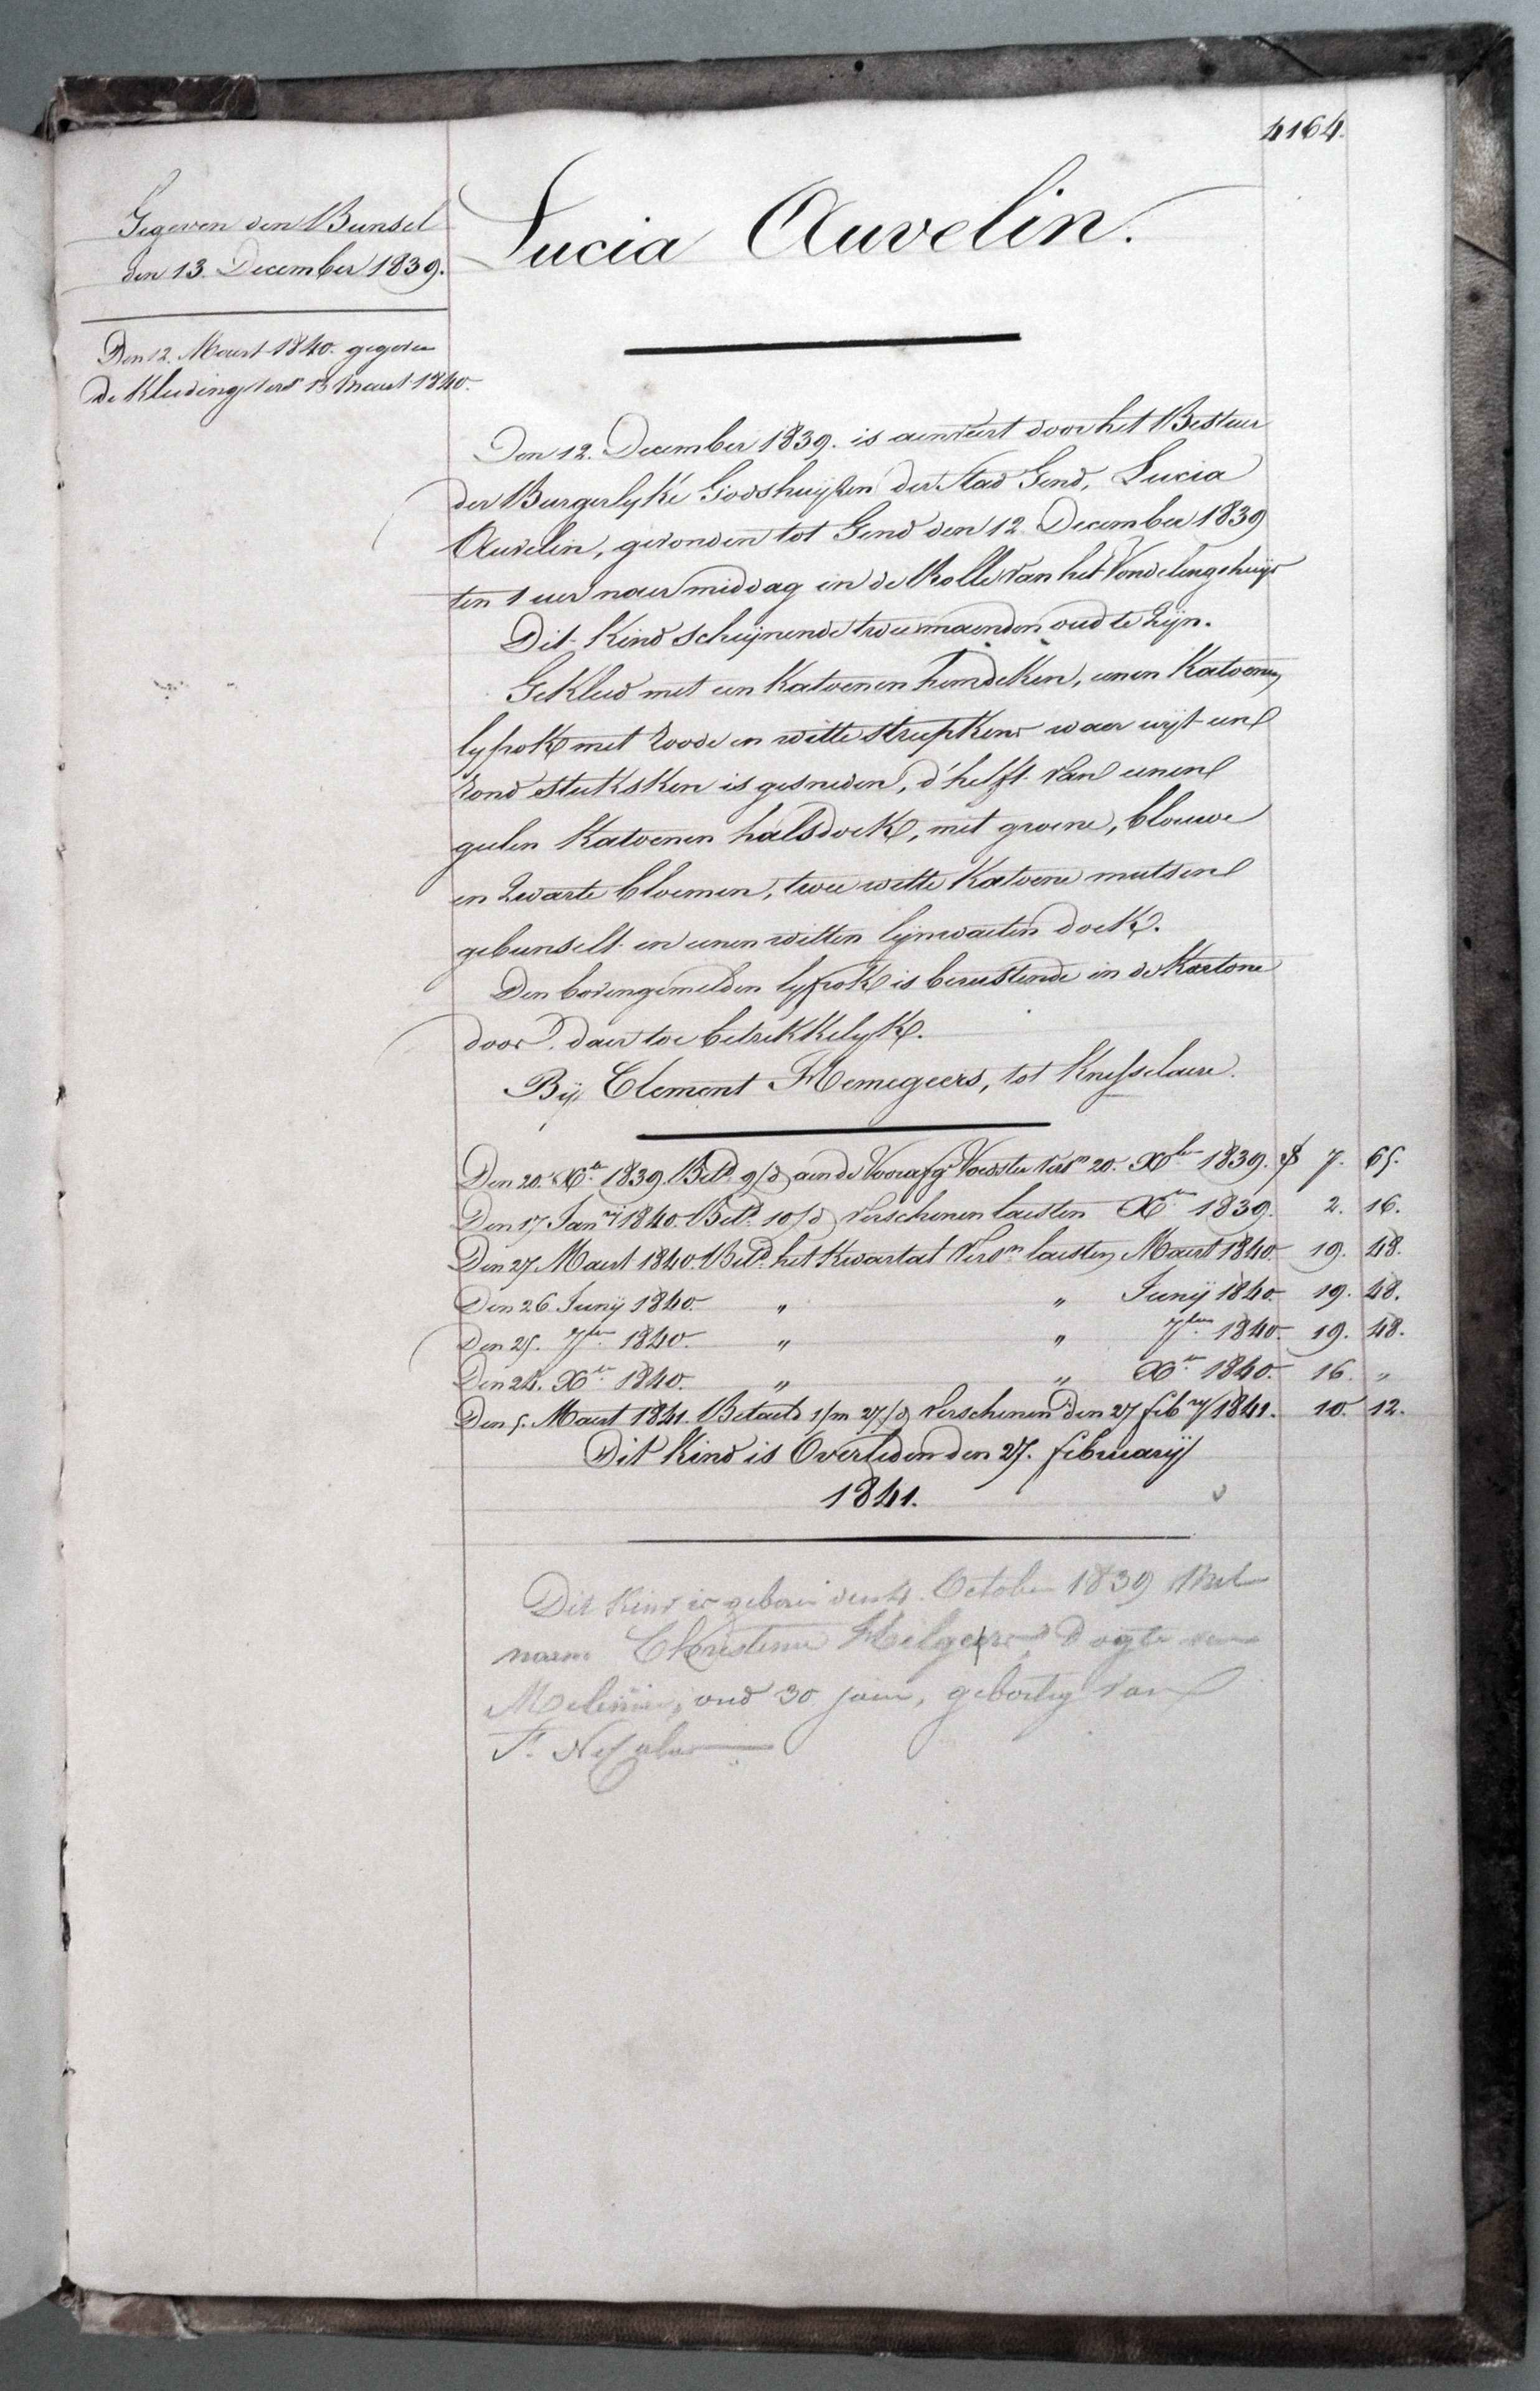 4164.
Gegeven den Bunsel
den 13. December 1839.
Den 12. Maert 1840. gegeven
de Kleeding vers 13 Maert 1840.
Lucia Auvelin.
Den 12. December 1839. is aenveert door het Bestuer
der Burgerlyke Godshuyzen der Stad Gend, Lucia
Auvelin, gevonden tot Gend den 12. December 1839
ten 1 uer naer middag in de Rolle van het Vondelingshuys
Dit Kind schynende twee maenden oud te zyn.
Gekleed met een Katoenen hemdeken, eenen Katoenen
lyfrok met roode en witte streepkens waer uyt een
rond stuksken is gesneden, d'helft van eenen
geelen Katoenen halsdoek, met groene, blouwe
en zwarte bloemen, twee witte Katoene mutsen
gebunselt in eenen witten lynwaeten doek.
Den bovengemelden lyfrok is berustende in de Kartone
door. daer toe betrekkelyk.
By Clement Hemegeers, tot Knesselaere.
Den 20. Xbr 1839. Betd. 9/d aen de Voorafge Voedster versn 20. Xber 1839. 7. 65.
Den 17 Janry 1840. Betd. 10/d verschenen laesten Xbr 1839. 2. 16.
Den 27 Maert 1840. Betd. het Kwartael versn. laesten Maert 1840. 19. 48.
Den 26 Juny 1840. " " Juny 1840. 19. 48.
Den 25. 7ber 1840. " " 7ber 1840. 19. 48.
Den 24. Xbr 1840. " " Xbr 1840. 16. "
Den 5. Maert 1841. Betaeld 1/m 27/d verschenen den 27 febry 1841. 10. 12.
Dit Kind is Overleden den 27. february
1841.
Dit Kind is geboren den 4. October 1839 Met
naem Christina dogter van
oud 30 jaer, geboortig van